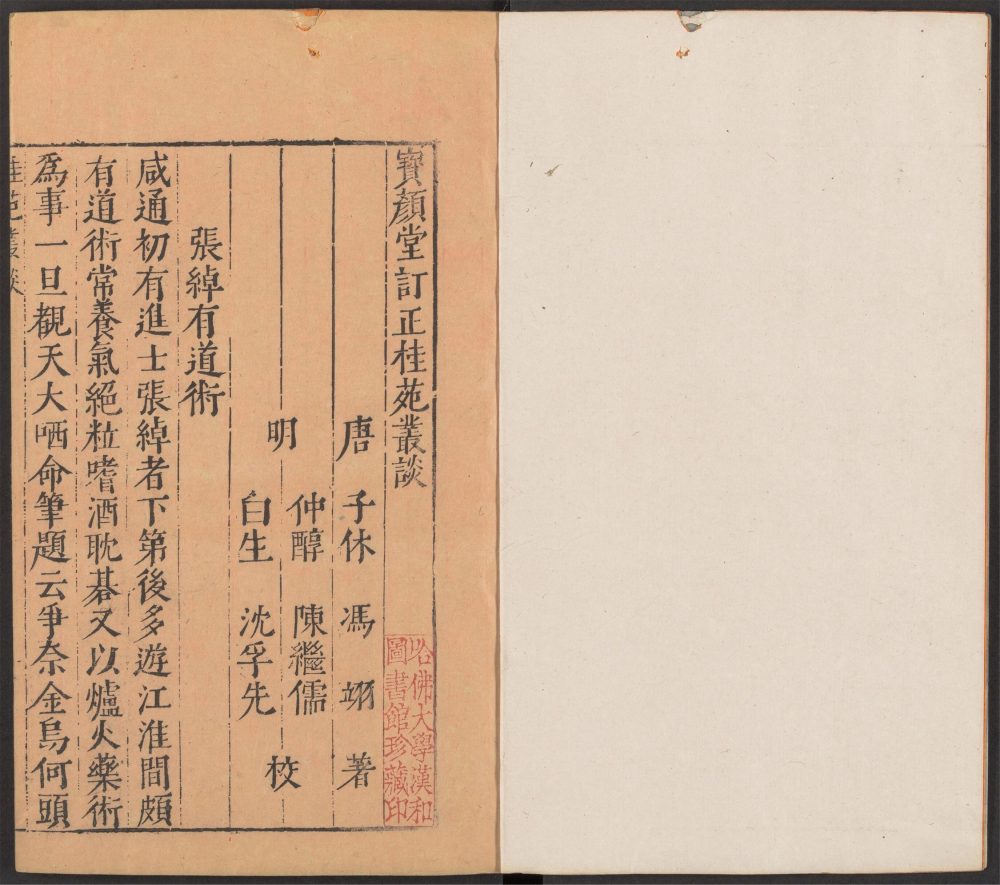 寶顏堂訂正桂苑叢談
哈佛大學漢和
圖書館珍藏印
唐 子休 馮 翊 著
明 仲醇 陳繼儒
白生 沈孚先 校
張綽有道術
咸通初有進士張綽者下第後多遊江淮間頗
有道術常養氣絕粒嗜酒耽碁又以爐火藥術
為事一旦覩天大哂命筆題云爭奈金烏何頭
桂苑叢談